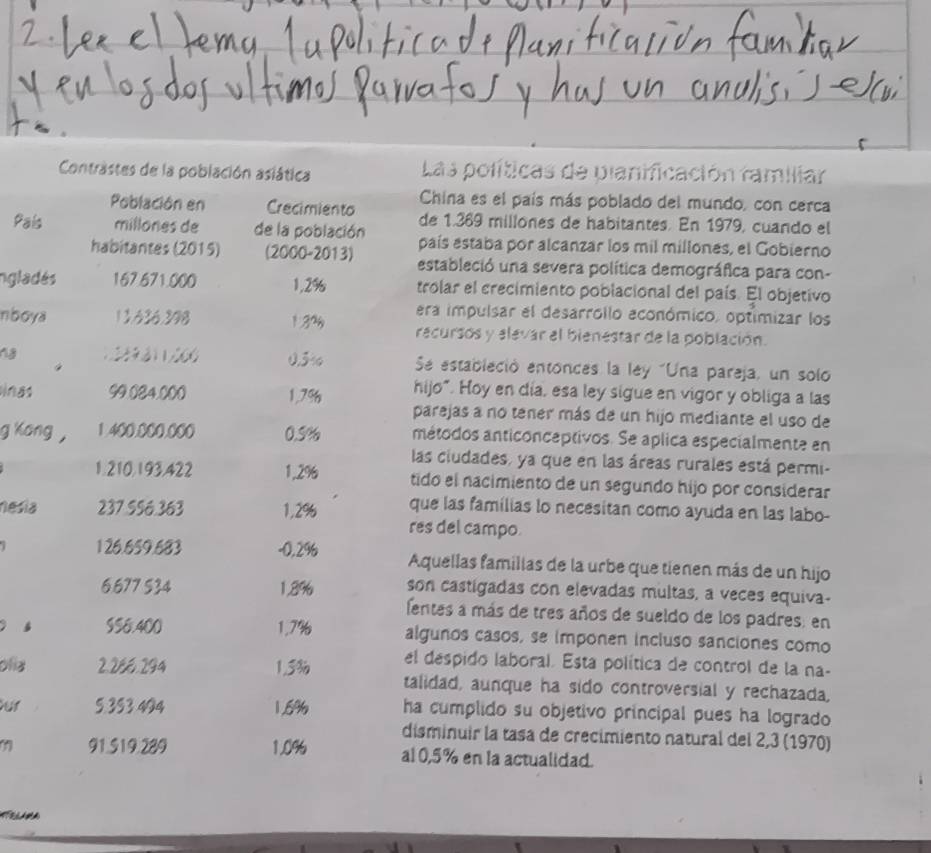 2. Lee el tema la politica de planificación familiar
y en los dos ultimos parrafos y has un analisis escri
to.
Contrastes de la población asiática
País
Población en millones de habitantes (2015)
Crecimiento de la población (2000-2013)
ngladés 167.671.000 1,2%
mboya 13.636.398 1,8%
na 0,5%
inas 99.084.000 1,7%
g Kong, 1.400.000.000 0.5%
1.210.193.422 1,2%
nesia 237.556.363 1,2%
126.659.683 -0,2%
6.677 534 1,8%
556.400 1,7%
olia 2.266.294 1,5%
pur 5.353.494 1,6%
m 91.519.289 1,0%
Las políticas de planificación familiar
China es el país más poblado del mundo, con cerca
de 1.369 millones de habitantes. En 1979, cuando el
país estaba por alcanzar los mil millones, el Gobierno
estableció una severa política demográfica para con-
trolar el crecimiento poblacional del país. El objetivo
era impulsar el desarrollo económico, optimizar los
recursos y elevar el bienestar de la población.
Se estableció entonces la ley "Una pareja, un solo
hijo". Hoy en día, esa ley sigue en vigor y obliga a las
parejas a no tener más de un hijo mediante el uso de
métodos anticonceptivos. Se aplica especialmente en
las ciudades, ya que en las áreas rurales está permi-
tido el nacimiento de un segundo hijo por considerar
que las familias lo necesitan como ayuda en las labo-
res del campo.
Aquellas familias de la urbe que tienen más de un hijo
son castigadas con elevadas multas, a veces equiva-
lentes a más de tres años de sueldo de los padres; en
algunos casos, se imponen incluso sanciones como
el despido laboral. Esta política de control de la na-
talidad, aunque ha sido controversial y rechazada,
ha cumplido su objetivo principal pues ha logrado
disminuir la tasa de crecimiento natural del 2,3 (1970)
al 0,5% en la actualidad.